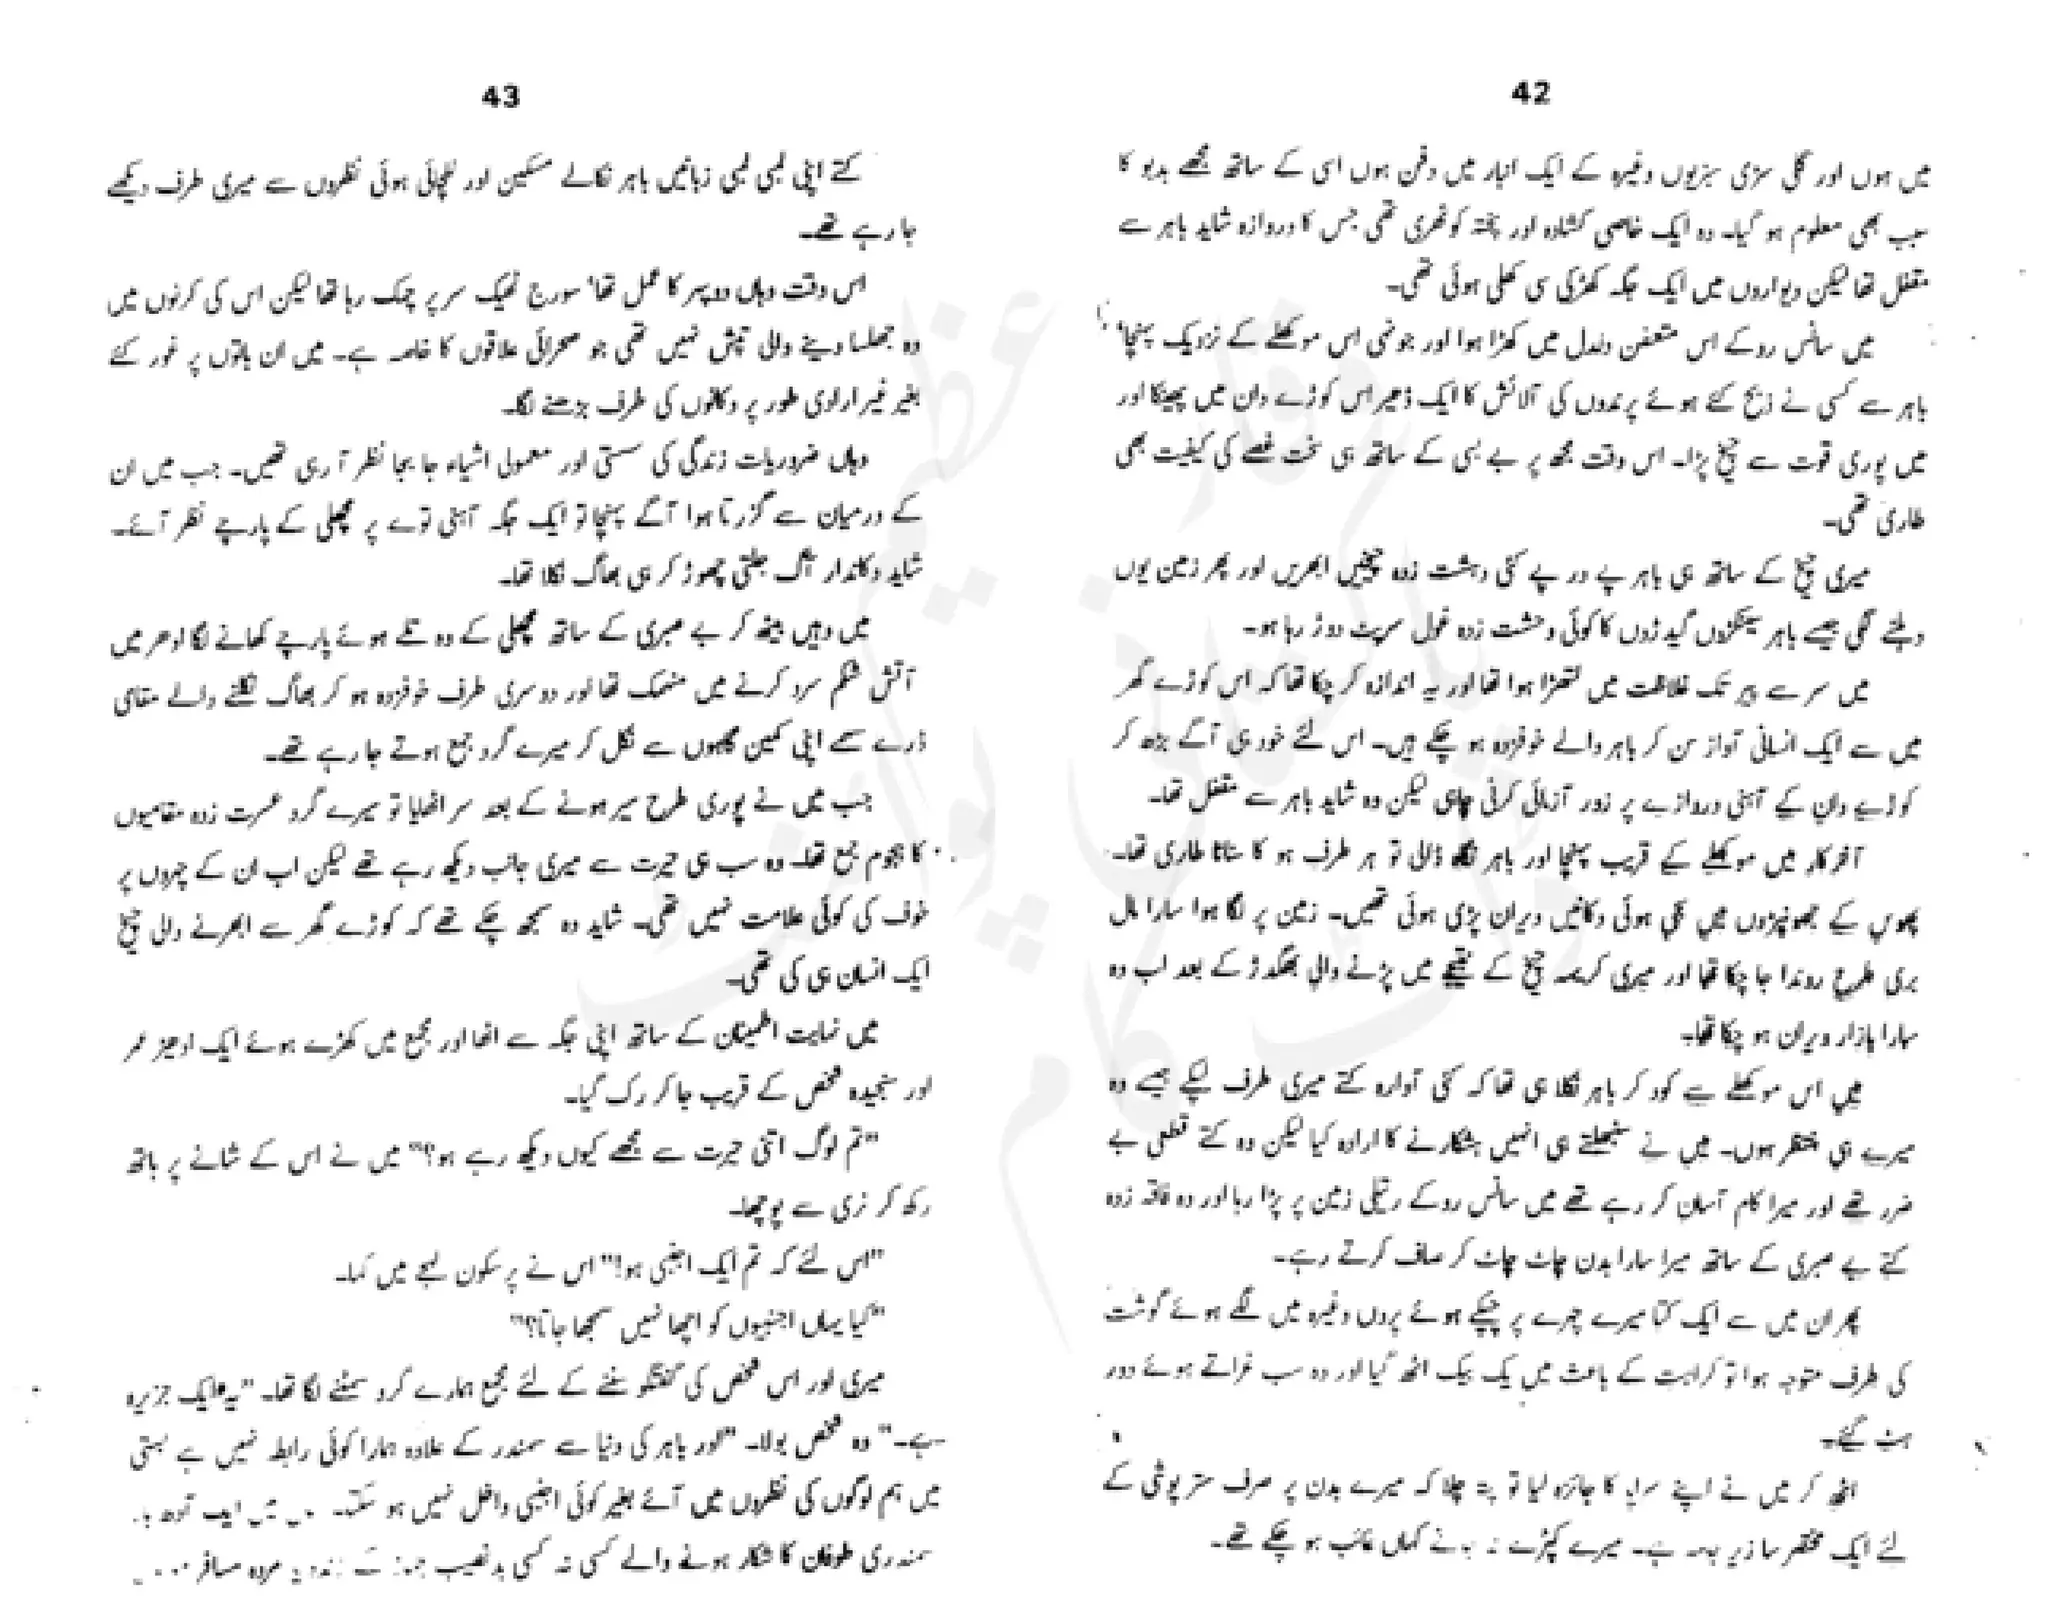 42
میں ہوں اور گلی سڑی سبزیوں وغیرہ کے ایک انبار میں دفن ہوں اسی کے ساتھ مجھے بدبو کا
سبب بھی معلوم ہو گیا۔ وہ ایک خاصی کشادہ اور پختہ کوٹھری تھی جس کا دروازہ شاید باہر سے
مقفل تھا لیکن دیواروں میں ایک جگہ کھڑکی سی کھلی ہوئی تھی۔
میں سانس روکے اس متعفن دلدل میں کھڑا ہوا اور جونہی اس موکھلے کے نزدیک پہنچا'
باہر سے کسی نے ذبح کئے ہوئے پرندوں کی آلائش کا ایک ڈھیر اس کوڑے دان میں پھینکا اور
میں پوری قوت سے چیخ پڑا۔ اس وقت مجھ پر بے بسی کے ساتھ ہی سخت غصے کی کیفیت بھی
طاری تھی۔
میری چیخ کے ساتھ ہی باہر پے در پے کئی دہشت زدہ چیخیں ابھریں اور پھر زمین یوں
دہلنے لگی جیسے باہر سینکڑوں گیدڑوں کا کوئی وحشت زدہ غول سرپٹ دوڑ رہا ہو۔
میں سر سے پیر تک غلاظت میں لتھڑا ہوا تھا اور یہ اندازہ کر چکا تھا کہ اس کوڑے گھر
میں سے ایک انسانی آواز سن کر باہر والے خوفزدہ ہو چکے ہیں۔ اس لئے خود ہی آگے بڑھ کر
کوڑے دان کے آہنی دروازے پر زور آزمائی کرنی چاہی لیکن وہ شاید باہر سے مقفل تھا۔
آخرکار میں موکھلے کے قریب پہنچا اور باہر نگاہ ڈالی تو ہر طرف ہو کا سناٹا طاری تھا۔
پھوس کے جھونپڑوں میں لگی ہوئی دکانیں ویران پڑی ہوئی تھیں۔ زمین پر لگا ہوا سارا مال
بری طرح روندا جا چکا تھا اور میری کریہہ چیخ کے نتیجے میں پڑنے والی بھگدڑ کے بعد اب وہ
سارا بازار ویران ہو چکا تھا۔
میں اس موکھلے سے کود کر باہر نکلا ہی تھا کہ کئی آوارہ کتے میری طرف لپکے جیسے وہ
میرے ہی منتظر ہوں۔ میں نے سنبھلتے ہی انہیں ہشکارنے کا ارادہ کیا لیکن وہ کتے قطعی بے
ضرر تھے اور میرا کام آسان کر رہے تھے میں سانس روکے ریتلی زمین پر پڑا رہا اور وہ فاقہ زدہ
کتے بے صبری کے ساتھ میرا سارا بدن چاٹ چاٹ کر صاف کرتے رہے۔
پھر ان میں سے ایک کتا میرے چہرے پر چپکے ہوئے پروں وغیرہ میں لگے ہوئے گوشت
کی طرف متوجہ ہوا تو کراہت کے باعث میں یک بیک اٹھ گیا اور وہ سب غراتے ہوئے دور
ہٹ گئے۔
اٹھ کر میں نے اپنے سراپا کا جائزہ لیا تو پتہ چلا کہ میرے بدن پر صرف ستر پوشی کے
لئے ایک مختصر سا زیر جامہ ہے۔ میرے کپڑے نہ جانے کہاں غائب ہو چکے تھے۔
43
کتے اپنی لمبی لمبی زبانیں باہر نکالے مسکین اور للچائی ہوئی نظروں سے میری طرف دیکھے
جا رہے تھے۔
اس وقت وہاں دوپہر کا عمل تھا' سورج ٹھیک سر پر چمک رہا تھا لیکن اس کی کرنوں میں
وہ جھلسا دینے والی تپش نہیں تھی جو صحرائی علاقوں کا خاصہ ہے۔ میں ان باتوں پر غور کئے
بغیر غیر ارادی طور پر دکانوں کی طرف بڑھنے لگا۔
وہاں ضروریات زندگی کی سستی اور معمولی اشیاء جا بجا نظر آ رہی تھیں۔ جب میں ان
کے درمیان سے گزرتا ہوا آگے پہنچا تو ایک جگہ آہنی توے پر مچھلی کے پارچے نظر آئے۔
شاید دکاندار آگ جلتی چھوڑ کر ہی بھاگ نکلا تھا۔
میں وہیں بیٹھ کر بے صبری کے ساتھ مچھلی کے وہ تلے ہوئے پارچے کھانے لگا ادھر میں
آتش شکم سرد کرنے میں منہمک تھا اور دوسری طرف خوفزدہ ہو کر بھاگ نکلنے والے مقامی
ڈرے سہمے اپنی کمین گاہوں سے نکل کر میرے گرد جمع ہوتے جا رہے تھے۔
جب میں نے پوری طرح سیر ہونے کے بعد سر اٹھایا تو میرے گرد عسرت زدہ مقامیوں
کا ہجوم جمع تھا۔ وہ سب ہی حیرت سے میری جانب دیکھ رہے تھے لیکن اب ان کے چہروں پر
خوف کی کوئی علامت نہیں تھی۔ شاید وہ سمجھ چکے تھے کہ کوڑے گھر سے ابھرنے والی چیخ
ایک انسان ہی کی تھی۔
میں نہایت اطمینان کے ساتھ اپنی جگہ سے اٹھا اور مجمع میں کھڑے ہوئے ایک ادھیڑ عمر
اور سنجیدہ شخص کے قریب جا کر رک گیا۔
"تم لوگ اتنی حیرت سے مجھے کیوں دیکھ رہے ہو؟" میں نے اس کے شانے پر ہاتھ
رکھ کر نرمی سے پوچھا۔
"اس لئے کہ تم ایک اجنبی ہو!" اس نے پرسکون لہجے میں کہا۔
"کیا یہاں اجنبیوں کو اچھا نہیں سمجھا جاتا؟"
میری اور اس شخص کی گفتگو سننے کے لئے مجمع ہمارے گرد سمٹنے لگا تھا۔ "یہ ایک جزیرہ
ہے۔" وہ شخص بولا۔ "اور باہر کی دنیا سے سمندر کے علاوہ ہمارا کوئی رابطہ نہیں ہے بستی
میں ہم لوگوں کی نظروں میں آئے بغیر کوئی اجنبی داخل نہیں ہو سکتا۔ ایک آدھ بار
سمندری طوفان کا شکار ہونے والے کسی نہ کسی بدنصیب جہاز کے زندہ یا مردہ مسافر